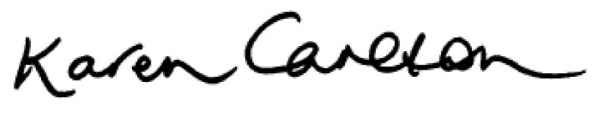 Karen Carlton